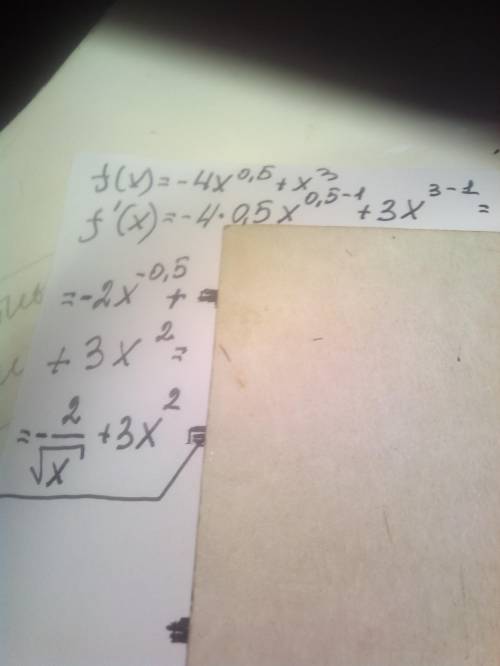 f(x)=-4x^0,5+x^3
f'(x)=-4·0,5x^0,5-1+3x^3-1=
=-2x^-0,5+
+3x^2=
=-2/√x+3x^2